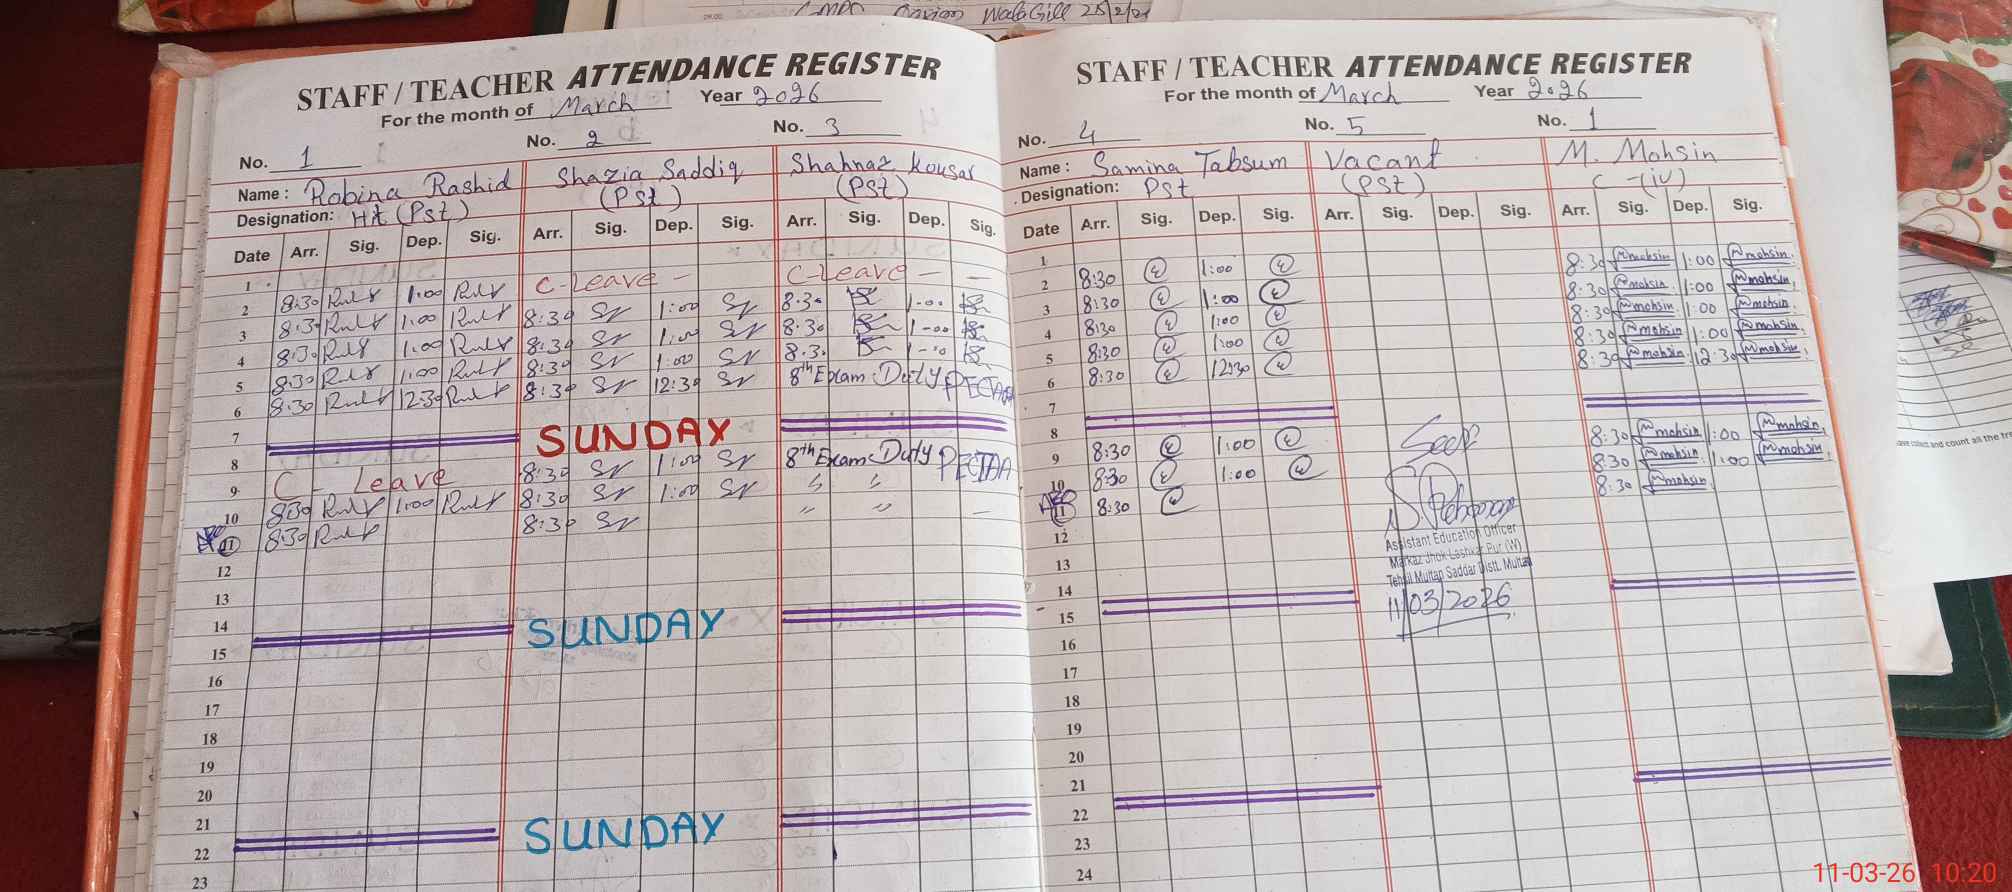 STAFF / TEACHER ATTENDANCE REGISTER
For the month of March Year 2026
No. 1 No. 2 No. 3
Name: Robina Rashid Shazia Saddiq Shahnaz Kousar
Designation: Ht (Pst) (Pst) (PSt)
Date Arr. Sig. Dep. Sig. Arr. Sig. Dep. Sig. Arr. Sig. Dep. Sig.
1
2 8:30 1:00 C-Leave - C-Leave -
3 8:30 1:00 8:30 1:00 8.30 1-00
4 8:30 1:00 8:30 1:00 8.30 1-00
5 8:30 1:00 8:30 1:00 8.30 1-00
6 8:30 12:30 8:30 12:30 8th Exam Duty PECTAA
7
8 SUNDAY
9 C - Leave 8:30 1:00 8th Exam Duty PECTAA
10 8:30 1:00 8:30 1:00 " "
11 8:30 8:30 " "
12
13
14
15 SUNDAY
16
17
18
19
20
21
22 SUNDAY
23
STAFF / TEACHER ATTENDANCE REGISTER
For the month of March Year 2026
No. 4 No. 5 No. 1
Name: Samina Tabsum Vacant M. Mohsin
Designation: PSt (PSt) C-(iv)
Date Arr. Sig. Dep. Sig. Arr. Sig. Dep. Sig. Arr. Sig. Dep. Sig.
1
2 8:30 1:00 8:30 mohsin 1:00 mohsin
3 8:30 1:00 8:30 mohsin 1:00 mohsin
4 8:30 1:00 8:30 mohsin 1:00 mohsin
5 8:30 1:00 8:30 mohsin 1:00 mohsin
6 8:30 12:30 8:30 mohsin 12:30 mohsin
7
8
9 8:30 1:00 8:30 mohsin 1:00 mohsin
10 8:30 1:00 8:30 mohsin 1:00 mohsin
11 8:30 8:30 mohsin
12
13
14
15
16
17
18
19
20
21
22
23
24
Assistant Education Officer
Markaz Jhok Lashkar Pur (W)
Tehsil Multan Saddar Distt. Multan
11/03/2026
11-03-26 10:20